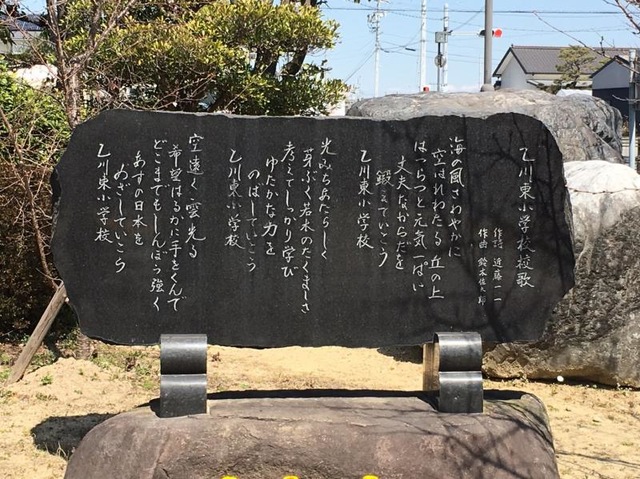 乙川東小学校校歌
作詩 近藤一一
作曲 鈴木佐久郎
海の風さわやかに
空はれわたる丘の上
はつらつと元気一ぱい
丈夫なからだを
鍛えていこう
乙川東小学校
光山ちあたらしく
芽ぶく若木のたくましさ
考えてしっかり学び
ゆたかな力を
のばしていこう
乙川東小学校
空遠く雲光る
希望はるかに手をくんで
どこまでもしんぼう強く
あすの日本を
めざしていこう
乙川東小学校